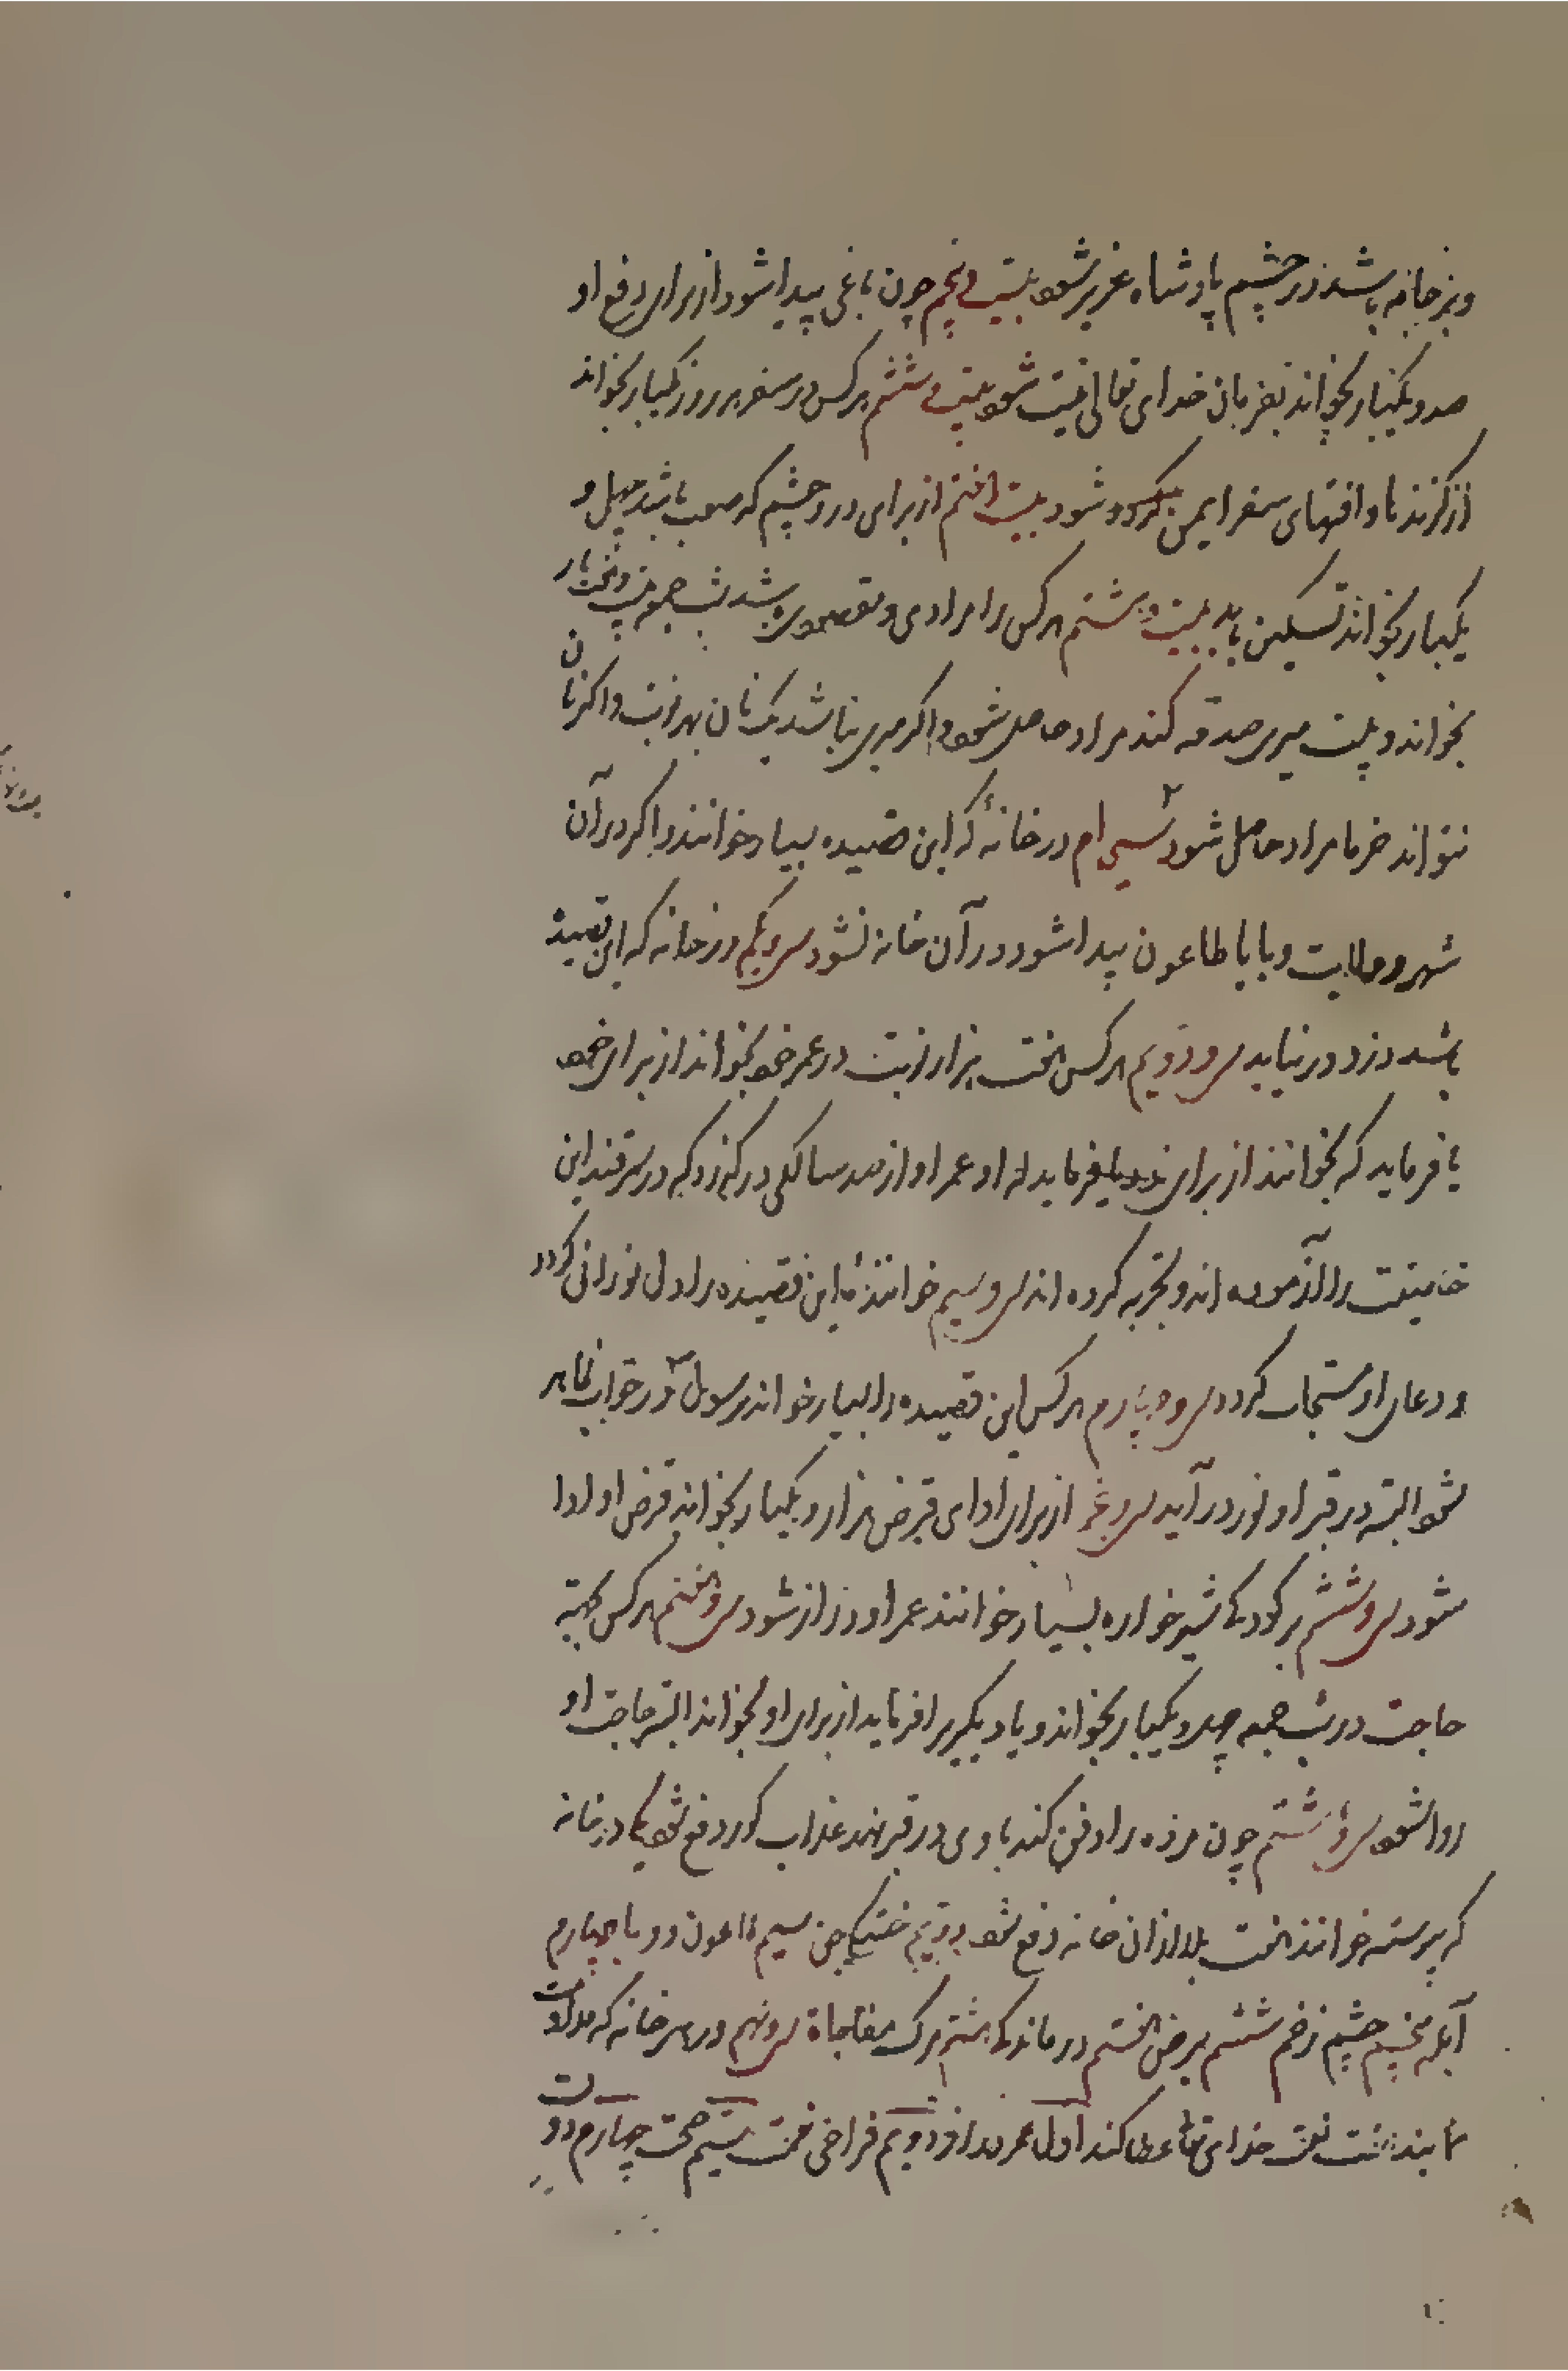 و بزخانه باشد در چشم پادشاه عزیز شود بیست و پنجم چون باغی پیدا شود از برای دفع او
صد و یکبار بخواند بفرمان خدای تعالی نیست شود بیست و ششم هرکس در سفر هر روز یکبار بخواند
از گزندها و افتهای سفر ایمن شود بیست و هفتم از برای درد چشم که صعب باشد چهل و
یکبار بخواند تسکین یابد بیست و هشتم هرکس را مرادی و مقصودی باشد شب جمعه بیست و هفت بار
بخواند و بیست سیر صدقه کند مراد حاصل شود و اگر سیر نباشد یک نان بهر نوبت و اگر نان
نتواند خرما مراد حاصل شود سی ام در خانهٔ که این قصیده بسیار خوانند و اگر در آن
شهر و ولایت وبا یا طاعون پیدا شود در آن خانه نشود سی و یکم در خانه که این قصیده
باشد دزد در نیاید سی و دویم هرکس هفت هزار نوبت در عمر خود بخواند از برای خود
یا فرماید که بخوانند از برای او عمر او از صد سالگی در گذرد که در سمرقند این
خاصیت را آزموده اند و تجربه کرده اند سی و سیم خوانندهٔ این قصیده را دل نورانی گردد
و دعای او مستجاب گردد سی و چهارم هرکس این قصیده را بسیار خواند رسول در خواب ظاهر
شود البته در قبر او نور در آید سی و پنجم از برای ادای قرض هزار و یکبار بخواند قرض او ادا
شود سی و ششم بر کودک شیرخواره بسیار خوانند عمر او دراز شود سی و هفتم هرکس بجهة
حاجت در شب جمعه چهل و یکبار بخواند و یا دیگریرا فرماید از برای او بخواند البته حاجت او
روا شود سی و هشتم چون مرده را دفن کند با وی در قبر نهند عذاب گور دفع شود در خانه
که پیوسته خوانند هفت بلا از ان خانه دفع شود دویم جن سیم طاعون و وبا چهارم
آبله پنجم چشم زخم ششم مرض هفتم درماندگی هشتم مرگ مفاجاة سی و نهم در هر خانه که مداومت
نمایند هشت نعمت خدای تعالی عطا کند اول عمر دراز دویم فراخی نعمت سیم صحت چهارم دولت